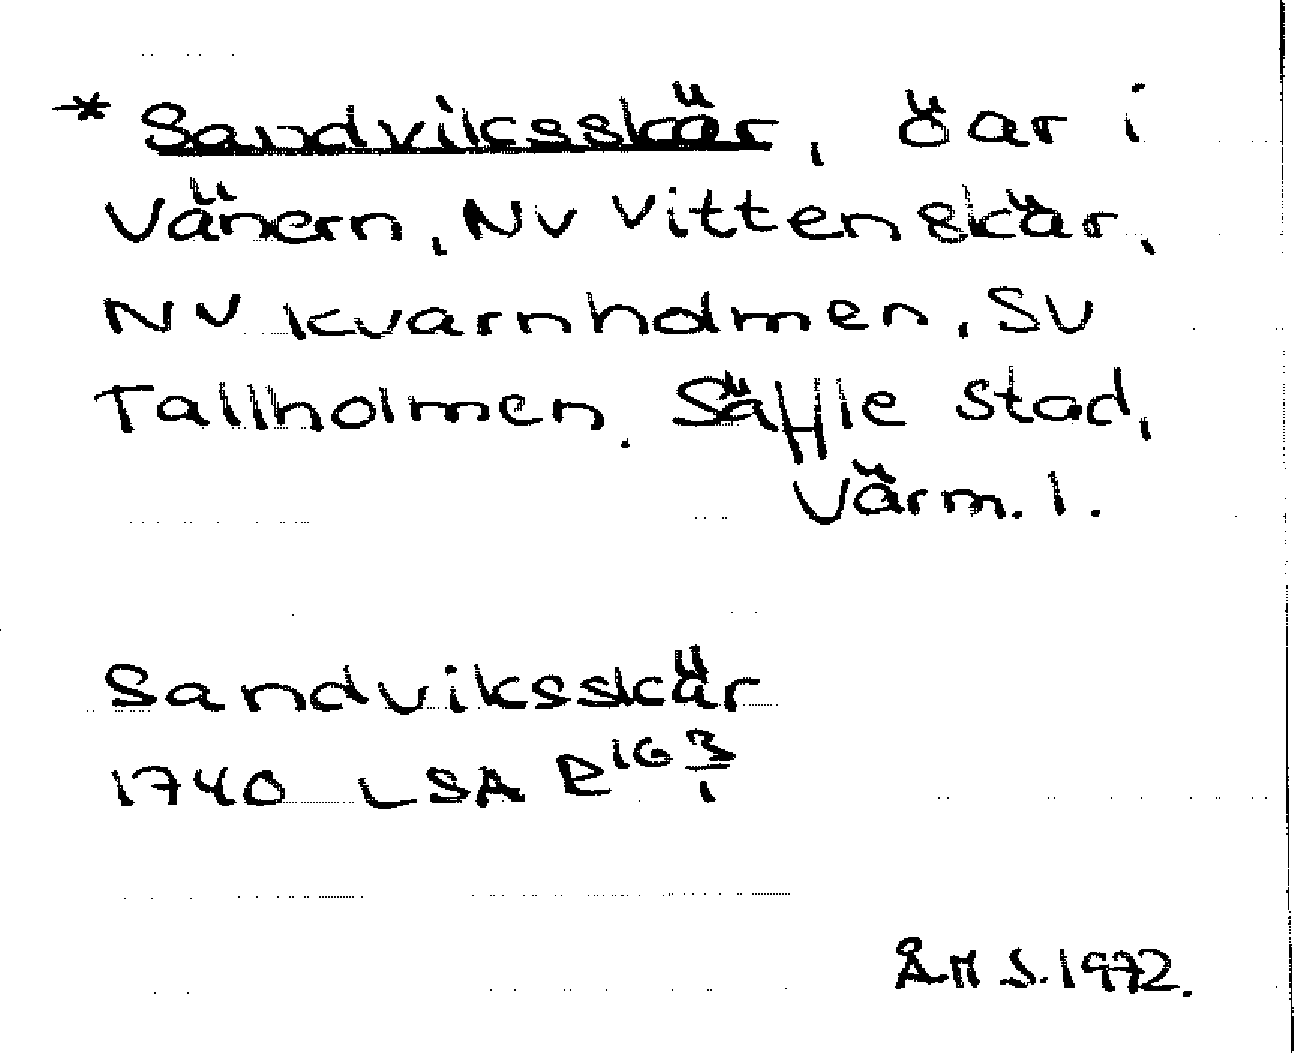 * Sandviksskär, öar i
Vänern, NV Vittenskär,
NV Kvarnholmen, SV
Tallholmen. Säffle stad,
Värm. l.
Sandviksskär
1740 LSA R16 3/1
ÅHS.1972.